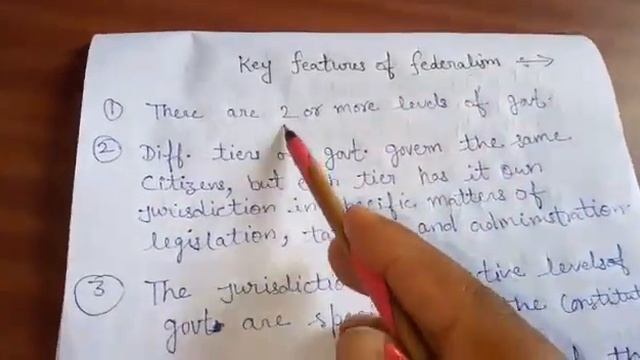 Key features of federalism
① There are 2 or more levels of govt.
② Diff. tiers of govt. govern the same
Citizens, but each tier has it own
jurisdiction in specific matters of
legislation, and administration.
③ The jurisdiction levels of
govt are the